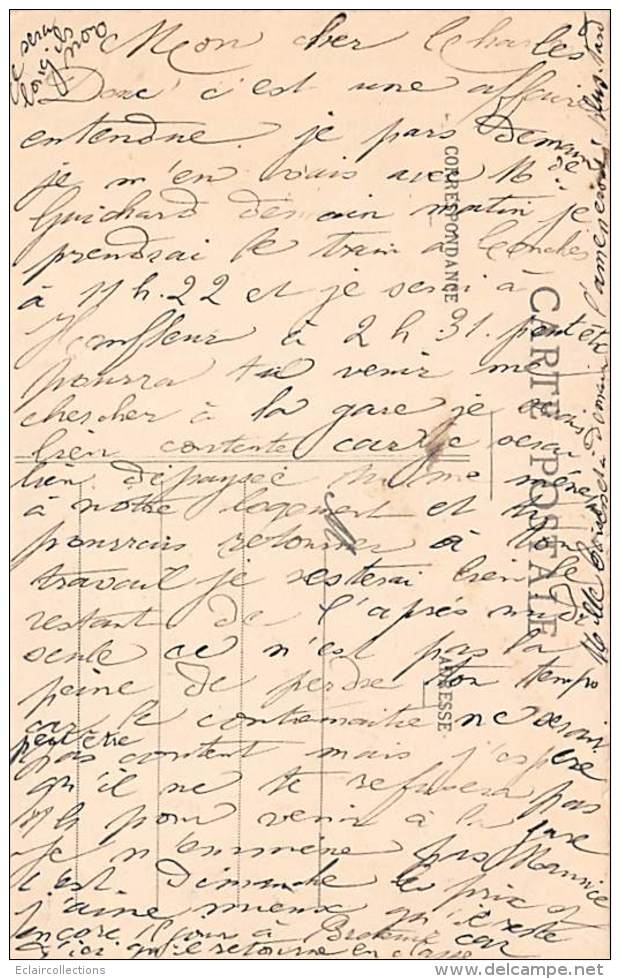 Mon cher Charles
Donc c'est une affaire
entendue. je pars demain
je m'en vais avec Mde
Guichard demain matin je
prendrai le train a Conches
à 11 h. 22 et je serai à
Honfleur à 2 h 31. peut être
pourra tu venir me
chercher à la gare je serais
bien contente car je serai
bien dépaysée tu me mène
à notre logement et tu
pourrais retourner à ton
travail je resterai bien le
restant de l'après midi
seule ce n'est pas la
peine de perdre ton temps
car le contremaitre ne serait
peut être
pas content mais j'espère
qu'il ne te refusera pas
1 h pour venir à la gare
Je n'emmène pas Maurice
c'est Dimanche le prix et
j'aime mieux qu'il reste
encore 1 jour à car
d'ici qu'il retourne en classe
CORRESPONDANCE
CARTE POSTALE
ADRESSE
Melle demain plus tard
Eclaircollections
delcampe.net